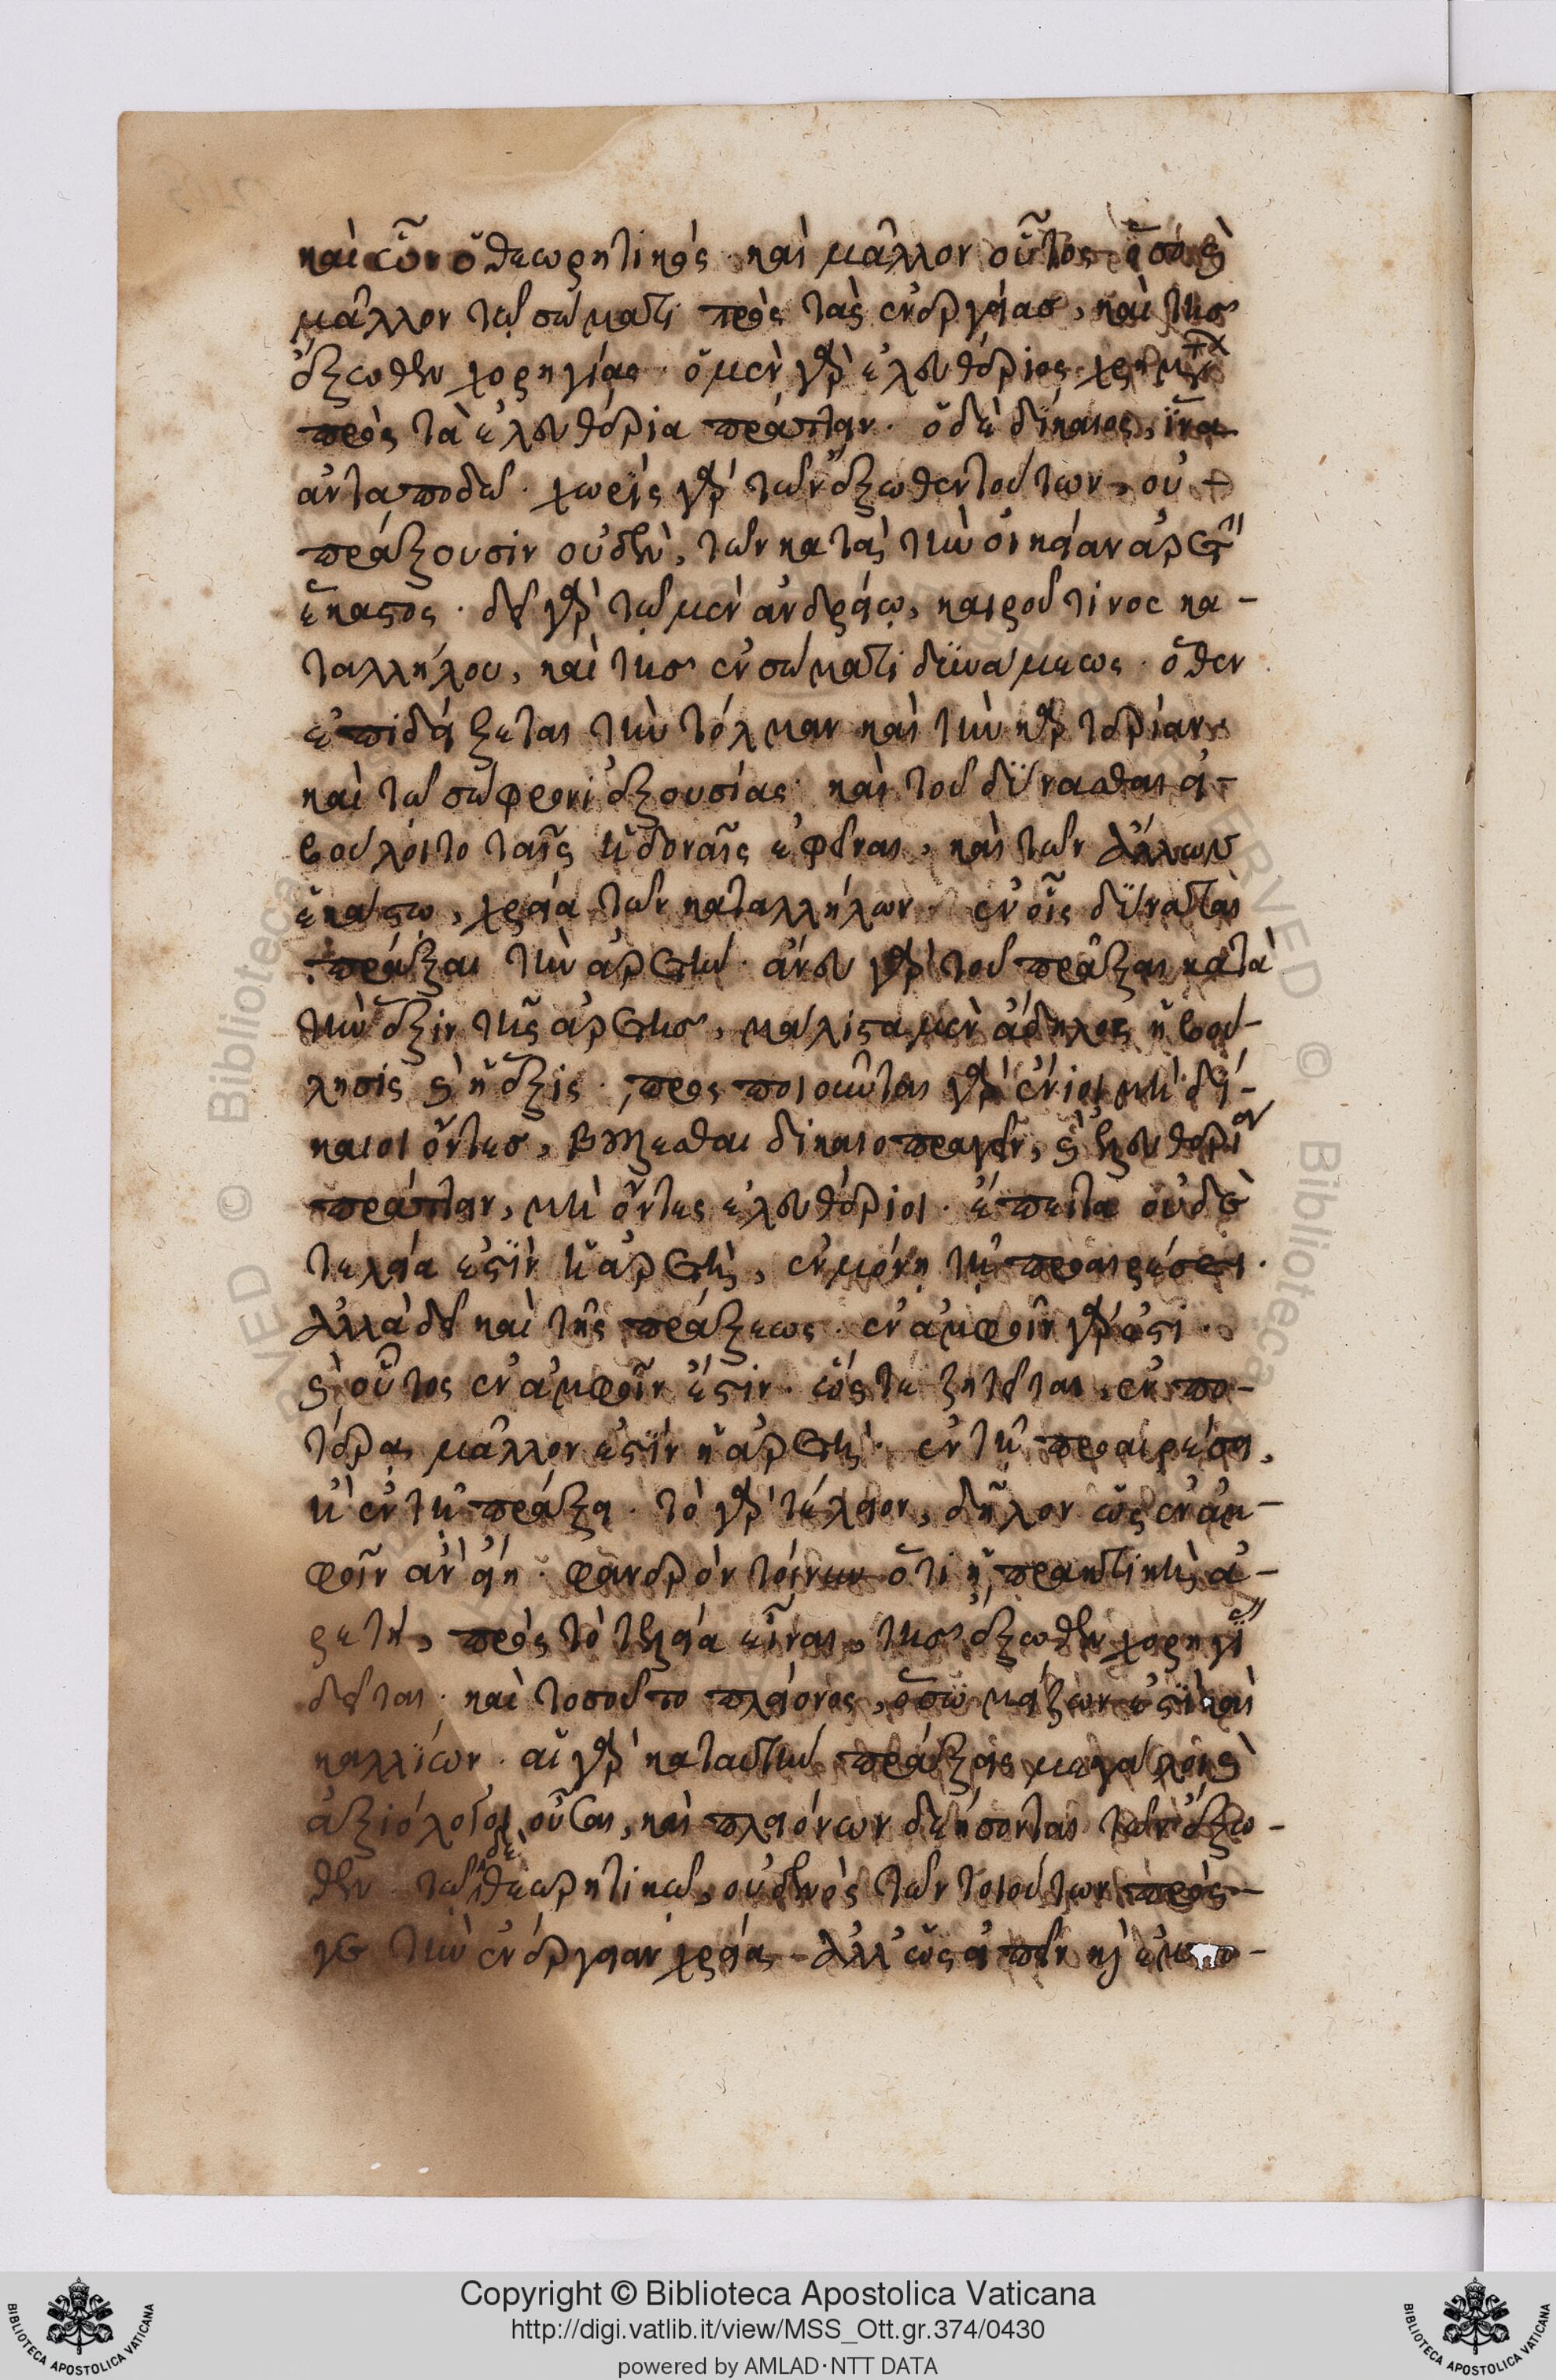 καὶ οὖν ὁ θεωρητικός· καὶ μᾶλλον οὗτος ὅσῳ καὶ
μᾶλλον τῷ σώματι πρὸς τὰς ἐνεργείας, καὶ τῆς
ἔξωθεν χορηγίας· ὁ μὲν γὰρ ἐλευθέριος χρημάτων
πρὸς τὰ ἐλευθέρια πράττειν· ὁ δὲ δίκαιος, ἵνα
ἀνταποδῶ· χωρὶς γὰρ τῶν ἔξωθεν τούτων, οὐ
πράξουσιν οὐδὲν, τῶν κατὰ τὴν οἰκείαν ἀρετὴν
ἕκαστος· δεῖ γὰρ τῷ μὲν ἀνδρείῳ, καιροῦ τινος κα-
ταλλήλου, καὶ τῆς ἐν σώματι δυνάμεως· ὅθεν
ἐπιδείξεται τὴν τόλμαν καὶ τὴν καρτερίαν·
καὶ τῷ σώφρονι ἐξουσίας· καὶ τοῦ δύνασθαι εἰ
βούλοιτο ταῖς ἡδοναῖς ἐφεῖναι, καὶ τῶν ἄλλων
ἑκάστῳ, χρεία τῶν καταλλήλων· ἐν οἷς δύναται
πρᾶξαι τὴν ἀρετήν· ἄνευ γὰρ τοῦ πρᾶξαι κατὰ
τὴν ἕξιν τῆς ἀρετῆς, μάλιστα μὲν ἄδηλος ἡ βού-
λησις καὶ ἡ ἕξις· προσποιοῦνται γὰρ ἔνιοι μὴ δί-
καιοι ὄντες, βούλεσθαι δικαιοπραγεῖν, καὶ ἐλευθέριον
πράττειν, μὴ ὄντες ἐλευθέριοι· ἔπειτα οὐδὲ
τελεία ἐστὶν ἡ ἀρετὴ, ἐν μόνῃ τῇ προαιρέσει·
ἀλλὰ δεῖ καὶ τῆς πράξεως· ἐν ἀμφοῖν γάρ ἐστι·
καὶ οὗτος ἐν ἀμφοῖν ἐστιν· ὥστε ζητεῖται, ἐν πο-
τέρᾳ μᾶλλον ἐστὶν ἡ ἀρετή· ἐν τῇ προαιρέσει,
ἢ ἐν τῇ πράξει· τὸ γὰρ τέλειον, δῆλον ὡς ἐν ἀμ-
φοῖν ἂν εἴη· φανερὸν τοίνυν ὅτι ἡ πρακτικὴ ἀ-
ρετή, πρὸς τὸ τελεία εἶναι, τῆς ἔξωθεν χορηγίας
δεῖται· καὶ τοσοῦτο πλείονος, ὅσῳ μείζων ἐστὶ καὶ
καλλίων· αἱ γὰρ κατ' αὐτὴν πράξεις μεγάλαι καὶ
ἀξιόλογοι οὖσαι, καὶ πλειόνων δεήσονται τῶν ἔξω-
θεν τῷ δὲ θεωρητικῷ, οὐδενὸς τῶν τοιούτων πρός
γε τὴν ἐνέργειαν χρεία· ἀλλ' ὡς εἰπεῖν καὶ ἐμπο-